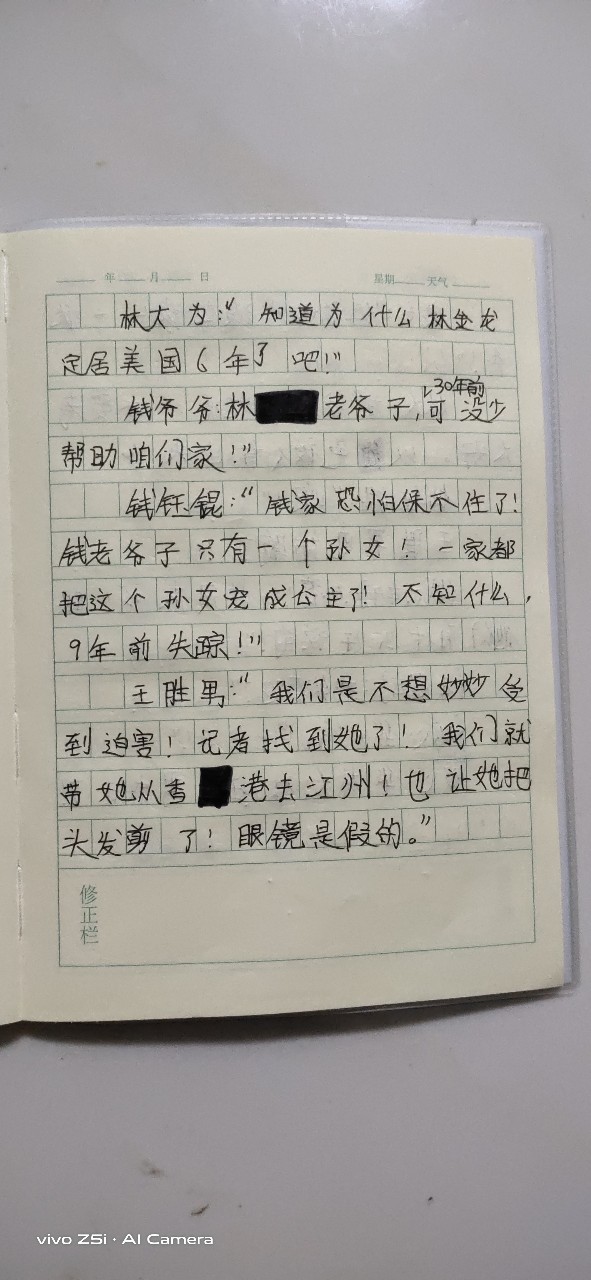 年 月 日 星期 天气
林大为:“知道为什么林金龙
定居美国6年了吧!”
,30年前
钱爷爷:林 老爷子,可没少
帮助咱们家!”
钱钰锟:“钱家恐怕保不住了!
钱老爷子只有一个孙女!一家都
把这个孙女宠成公主了!不知什么,
9年前失踪!”
王胜男:“我们是不想妙妙受
到迫害!记者找到她了!我们就
带她从香 港去江州!也让她把
头发剪了!眼镜是假的。”
修正栏
vivo Z5i · AI Camera